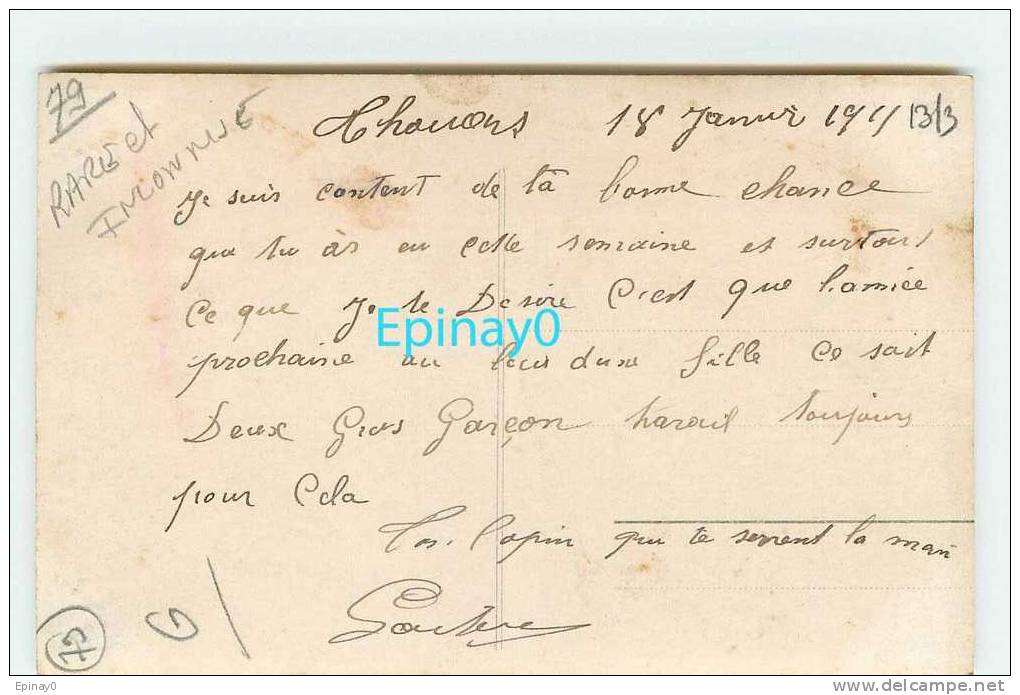 79
RARE et
INCONNUE
Thouars 18 Janvir 1911 13/3
Je suis content de ta bonne chance
que tu às eu cette semaine et surtout
Ce que Je te Desire C'est que l'année
prochaine au lieu dune fille Ce soit
Deux Gros Garçon travail toujours
pour Cela
Tos. Copin qui te serrent la main
G
79
Epinay0
Epinay0
www.delcampe.net